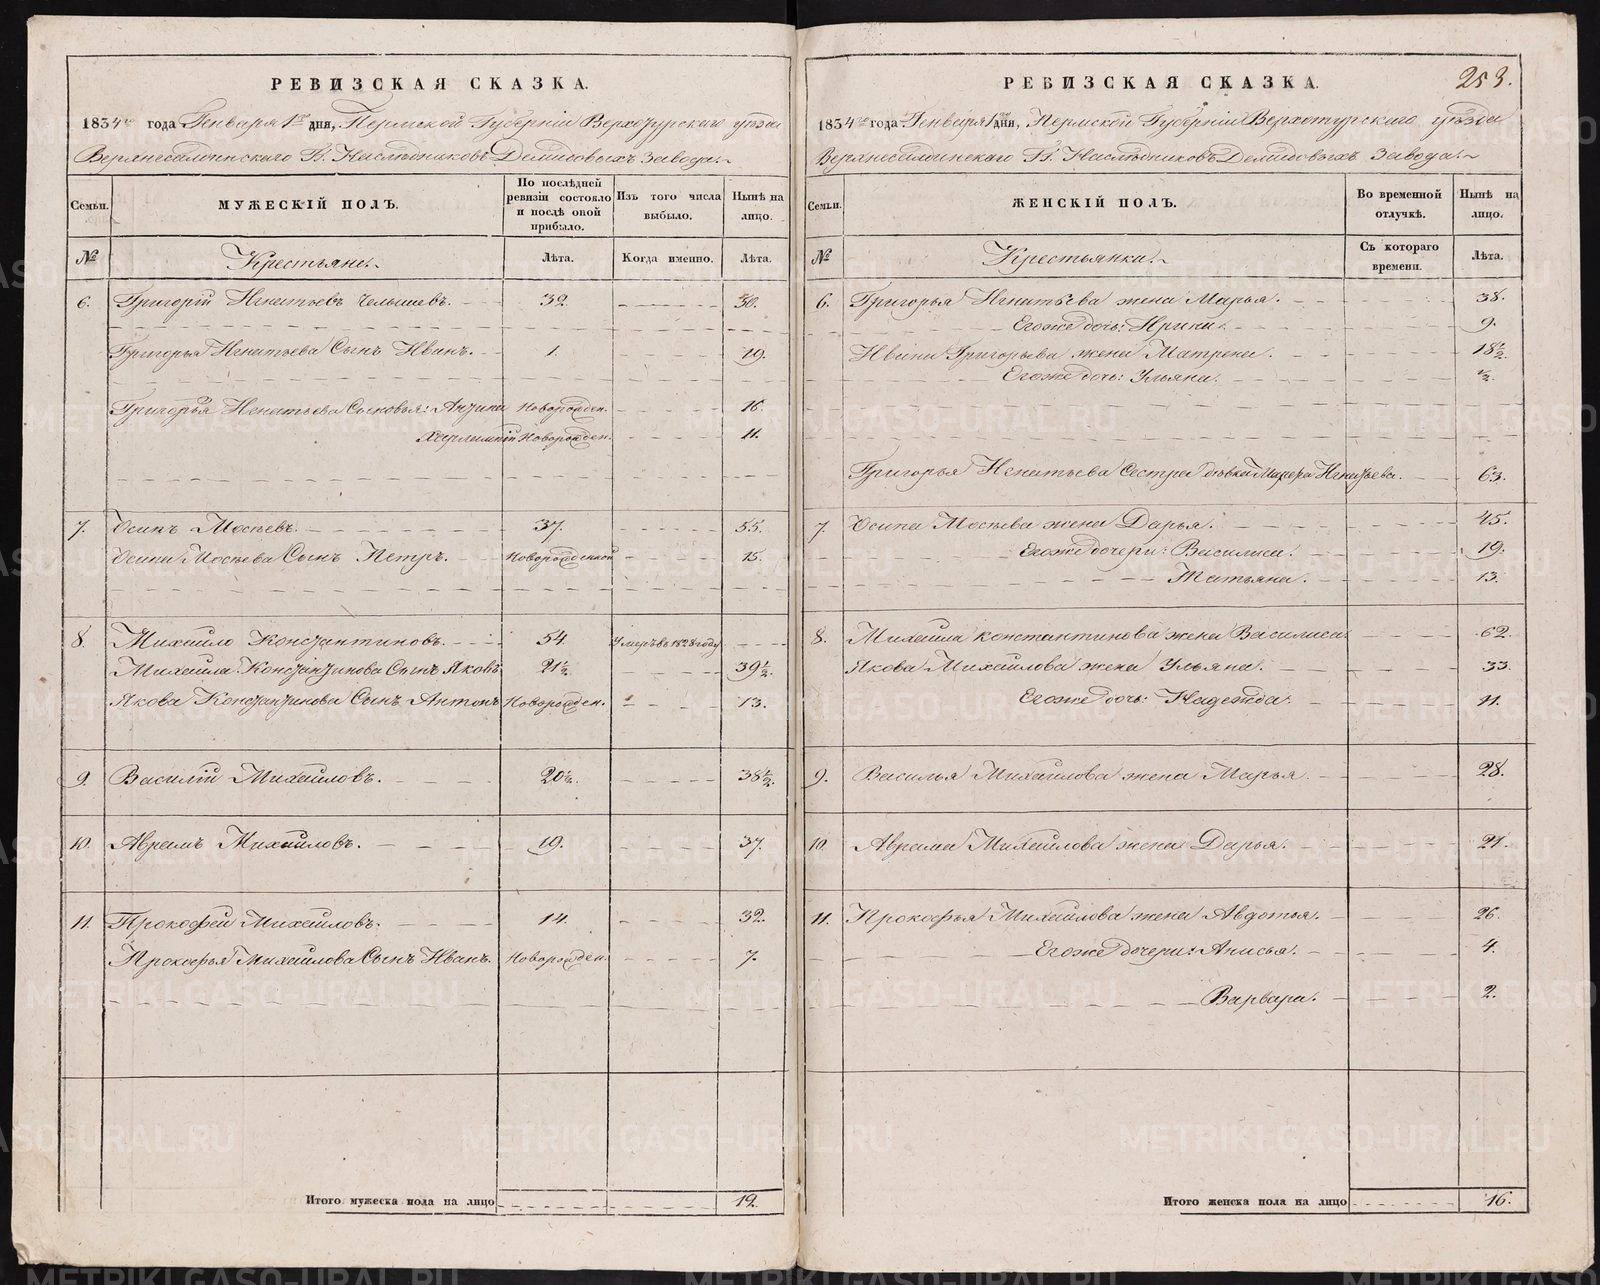 РЕВИЗСКАЯ СКАЗКА.
1834го года Генваря 1го дня, Пермской Губерніи Верхотурскаго уѣзда
Верхнесалдинскаго Г. Наслѣдниковъ Демидовыхъ завода.
Семьи. МУЖЕСКІЙ ПОЛЪ. По послѣдней ревизіи состояло и послѣ оной прибыло. Изъ того числа выбыло. Нынѣ на лицо.
№ Крестьяне. Лѣта. Когда именно. Лѣта.
6. Григорій Игнатьевъ Челышевъ. 32.
Григорья Игнатьева Сынъ Иванъ. 1. 19.
Григорья Игнатьева Сыновья: Новорожден. 16.
Харлампій Новорожден. 11.
7. Осипъ Мосѣевъ. 37. 55.
Осипа Мосѣева Сынъ Петръ. Новорожденной 15.
8. Михайло Константиновъ. 54 Умеръ въ 1828 году
Михайла Константинова Сынъ Яковъ 21½ 39½
Якова Константинова Сынъ Антонъ Новорожден. 13.
9. Василій Михайловъ. 20½. 38½.
10. Аврамъ Михайловъ. 19. 37.
11. Прокофей Михайловъ. 14. 32.
Прокофья Михайлова Сынъ Иванъ. Новорожден. 7.
Итого мужеска пола на лицо 12.
253.
РЕВИЗСКАЯ СКАЗКА.
1834го года Генваря 1го дня, Пермской Губерніи Верхотурскаго уѣзда
Верхнесалдинскаго Г. Наслѣдниковъ Демидовыхъ завода.
Семьи. ЖЕНСКІЙ ПОЛЪ. Во временной отлучкѣ. Нынѣ на лицо.
№ Крестьянки. Съ котораго времени. Лѣта.
6. Григорья Игнатьева жена Марья. 38.
Его же дочь: Ирина. 9.
Ивана Григорьева жена Матрена. 18½.
Его же дочь: Ульяна. ½.
Григорья Игнатьева Сестра дѣвка Игнатьева. 63.
7. Осипа Мосѣева жена Дарья. 45.
Его же дочери: Василиса. 19.
Татьяна. 13.
8. Михайла Константинова жена Василиса. 62.
Якова Михайлова жена Ульяна. 33.
Его же дочь: Надежда. 11.
9. Василья Михайлова жена Марья. 28.
10. Аврама Михайлова жена Дарья.
11. Прокофья Михайлова жена Авдотья. 26.
Его же дочери: Анисья. 4.
Варвара. 2.
Итого женска пола на лицо 16.
METRIKI.GASO-URAL.RU